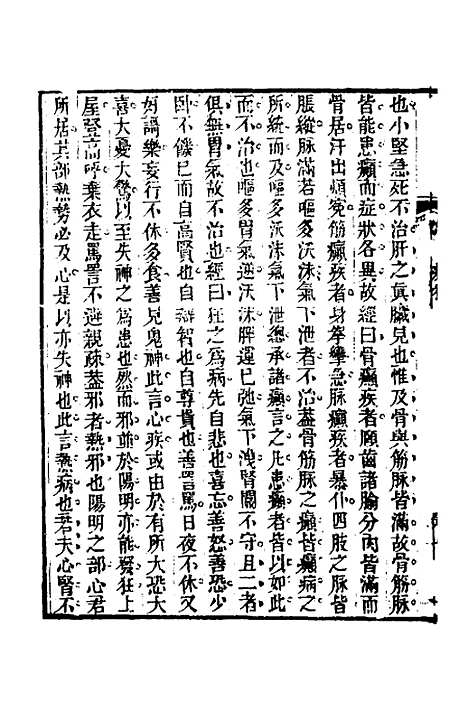 也小堅急死不治肝之眞臟見也惟及骨與筋脉皆滿故骨筋脉
皆能患癲而症狀各異故經曰骨癲疾者顑齒諸腧分肉皆滿而
骨居汗出煩寃筋癲疾者身拳攣急脉癲疾者暴仆四肢之脉皆
脹縱脉滿若嘔多沃沫氣下泄者不治蓋骨筋脉之癲皆癲病之
所統而及嘔多沃沫氣下泄總承諸癲言之凡患癲者皆以如此
而不治也嘔多胃氣逆沃沫脾運已弛氣下洩腎關不守且二者
俱無胃氣故不治也經曰狂之爲病先自悲也喜忘善怒善恐少
卧不饑已而自高賢也自辯智也自尊貴也善罵詈日夜不休又
好謌樂妄行不休多食善見鬼神此言心疾或由於有所大恐大
喜大憂大驚以至失神之爲患也然而邪並於陽明亦能發狂上
屋登高呼棄衣走罵詈不避親疎蓋邪者熱邪也陽明之部心君
所居其部熱勢必及心是以亦失神也此言熱病也若夫心腎不